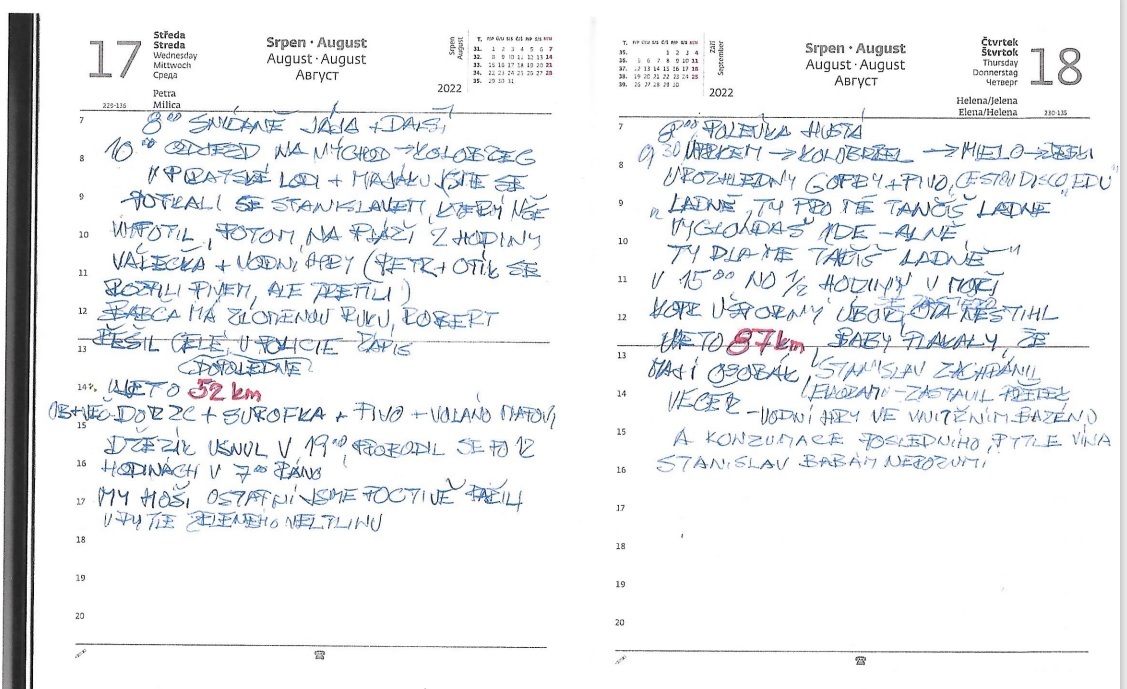 17
Středa
Streda
Wednesday
Mittwoch
Среда
Petra
Milica
229-136
Srpen · August
August · August
Август
Srpen
August
T. P/P Ú/U S/S Č/Š P/P S/S N/N
31. 1 2 3 4 5 6 7
32. 8 9 10 11 12 13 14
33. 15 16 17 18 19 20 21
34. 22 23 24 25 26 27 28
35. 29 30 31
2022
7
8⁰⁰ SNÍDANĚ JÁJA + DALŠÍ
8
10⁰⁰ ODJEZD NA VÝCHOD → KOLOBŽEG
V PIRÁTSKÉ LODI + MAJÁKU JSME SE
9
POTKALI SE STANISLAVEM, KTERÝ NÁS
10
VYFOTIL, POTOM, NA PLÁŽI 2 HODINY
11
VÁLEČKA + VODNÍ HRY (PETR + OTÍK SE
POLILI PIVEM, ALE PŘEŽILI)
12
BABČA MÁ ZLOMENOU RUKU, ROBERT
13
ŘEŠIL CELÉ, U POLICIE ZÁPIS
DOPOLEDNE
14
UJETO 52 km
15
DORZC + SUROFKA + PIVO + VOLÁNO
DŽEZÍK USNUL V 19⁰⁰, PROBUDIL SE PO 12
16
HODINÁCH V 7⁰⁰ RÁNO
17
MY HOŠI OSTATNÍ JSME POCTIVĚ PAŘILI
U PYTLE ZELENÉHO VELTLÍNU
18
19
20
T. P/P Ú/U S/S Č/Š P/P S/S N/N
35. 1 2 3 4
36. 5 6 7 8 9 10 11
37. 12 13 14 15 16 17 18
38. 19 20 21 22 23 24 25
39. 26 27 28 29 30
Září
September
2022
Srpen · August
August · August
Август
Čtvrtek
Štvrtok
Thursday
Donnerstag
Четверг
18
Helena/Jelena
Elena/Helena
230-135
7
8⁰⁰ POLÉVKA HUSTÁ
8
9,30 → KOLOBŘEG → MIELO →
U ROZHLEDNY GOFRY + PIVO, CESTOU DISCO „EDU"
9
„LADNĚ, TY PRO MĚ TANČÍŠ LADNĚ
10
VYGLONDÁŠ IDE-ALNĚ
TY DLA MĚ TAČÍŠ LADNĚ"
11
V 15⁰⁰ NO 1/2 HODINY V MOŘI
12
ÚBOR, OTA NESTIHL
UJETO 87 km BABY PLAKALY, ŽE
13
MAJÍ OSOBÁK, STANISLAV ZACHRÁNIL
14
VEČER - VODNÍ HRY VE VNITŘNÍM BAZÉNU
15
A KONZUMACE POSLEDNÍHO PYTLE VÍNA
16
STANISLAV BABÁM NEROZUMÍ
17
18
19
20